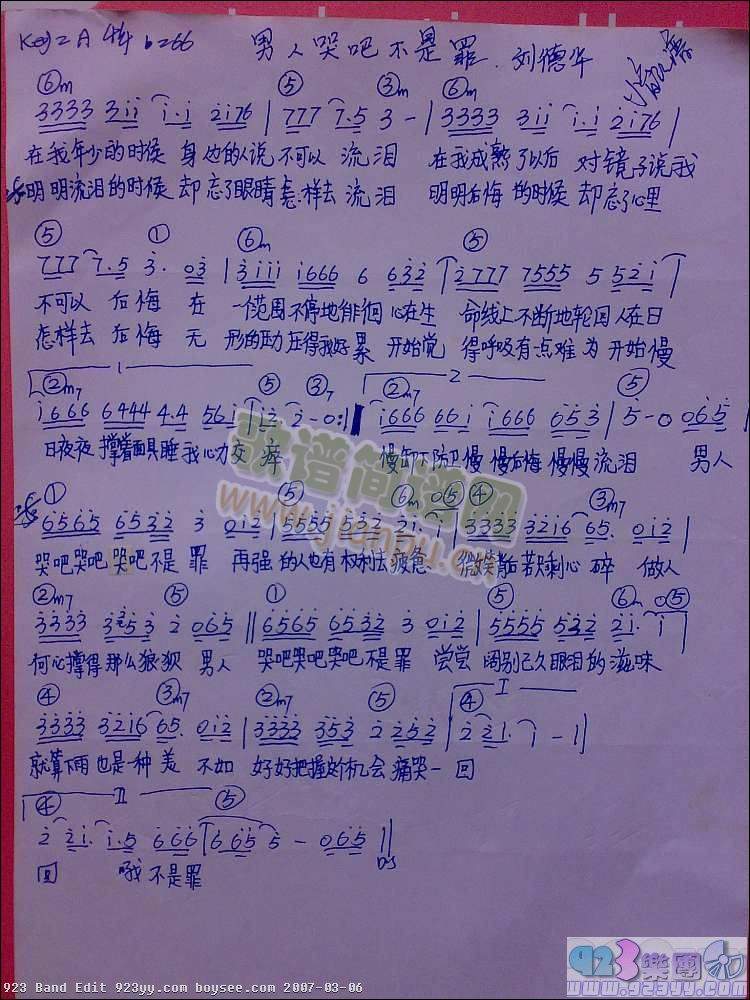 Key=A 4/4 b=66 男人哭吧不是罪. 刘德华
⑥m ⑤ ③m ⑥m
3333 3ii i.i 2i76 | 777 7.5 3 - | 3333 3ii i.i 2i76 |
在我年少的时候 身边的人说 不可以 流泪 在我成熟了以后 对镜子说我
明明流泪的时候 却忘了眼睛怎样去 流泪 明明后悔的时候 却忘了心里
⑤ ① ⑥m ⑤
777 7.5 3. 03 | 3iii i666 6 632 | 2777 7555 5 52i |
不可以 后悔 在 一范围不停地徘徊 心在生 命线上不断地轮回 人在日
怎样去 后悔 无 形的压力压得我好累 开始觉 得呼吸有点难为 开始慢
1 2
②m7 ⑤ ③7 ②m7 ⑤
i666 6444 4.4 56i | i2. i - 0 :| i666 66i i666 653 | 5 - 0 065 |
日夜夜 撑着面具睡 我心力交 瘁 慢卸下防卫 慢慢后悔 慢慢流泪 男人
① ⑤ ⑥m 0⑤ ④ ③m7
6565 6532 3 012 | 5555 532 2i. i | 3333 3216 65. 012 |
哭吧哭吧 哭吧不是 罪 再强 的人也有权利去疲惫 微笑背后若只剩心 碎 做人
②m7 ⑤ ① ⑤ ⑥m 0⑤
3333 3253 2 065 || 6565 6532 3 012 | 5555 532 2i. i |
何必撑得那么狼狈 男人 哭吧哭吧哭吧不是罪 尝尝 阔别已久眼泪的滋味
④ ③m7 ②m7 ⑤ ④ I
3333 3216 65. 012 | 3333 353 2 2252 | 2 2i. i - i ||
就算下雨也是一种 美 不如 好好把握这个机会 痛哭一 回
④ II ⑤
2 2i. i.5 666 | 665 5 - 065 ||
回 哦 不是罪
DS
歌谱简谱网
www.jianpu.cn
923樂團
www.923yy.com
923 Band Edit 923yy.com boysee.com 2007-03-06